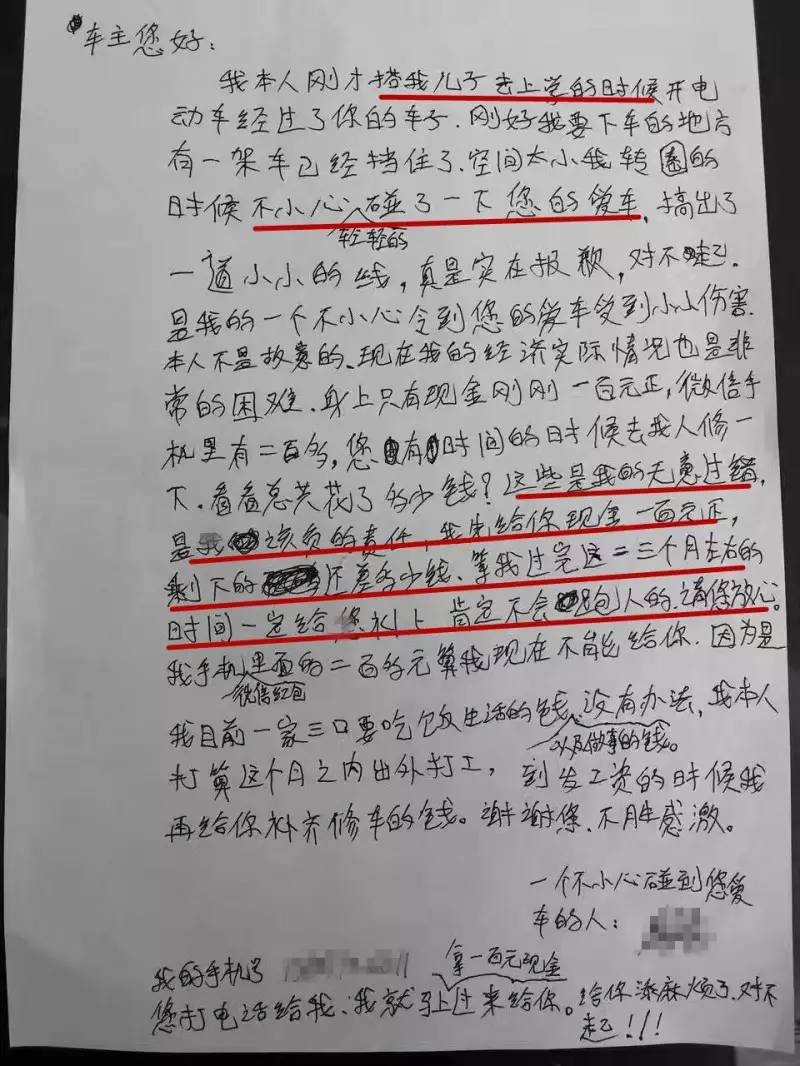 车主您好：
我本人刚才搭我儿子去上学的时候开电
动车经过了你的车子.刚好我要下车的地方
有一架车已经挡住了.空间太小我转圈的
时候不小心碰了一下您的爱车,搞出了
轻轻的
一道小小的线,真是实在报歉,对不起.
是我的一个不小心令到您的爱车受到小小伤害.
本人不是故意的.现在我的经济实际情况也是非
常的困难.身上只有现金刚刚一百元正,微信手
机里有二百多,您有时间的时候去找人修一
下.看看总共花了多少钱?这些是我的无意过错,
是我该负的责任,我先给你现金一百元正,
剩下的还差多少钱、等我过完这二三个月左右的
时间一定给您补上肯定不会跑人的.请您放心。
我手机里面的二百多元算我现在不能给你.因为是
微信红包
我目前一家三口要吃饭生活的钱.没有办法,我本人
以及做事的钱。
打算这个月之内出外打工,到发工资的时候我
再给你补齐修车的钱。谢谢您.不胜感激。
一个不小心碰到您爱
车的人：
我的手机号
拿一百元现金
您打电话给我、我就马上过来给你。给你添麻烦了.对不
起!!!